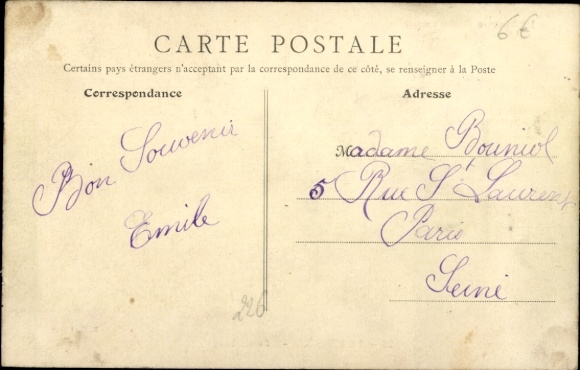 6€
CARTE POSTALE
Certains pays étrangers n'acceptant pas la correspondance de ce côté, se renseigner à la Poste
Correspondance
Adresse
Bon Souvenir
Emile
Madame Bouniol
5 Rue St Laurent
Paris
Seine
226